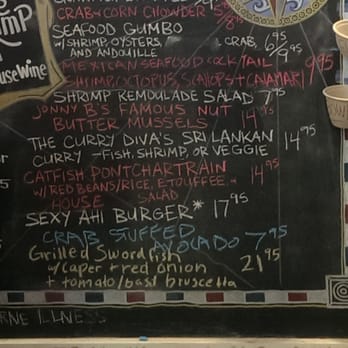 CRAB & CORN CHOWDER
SEAFOOD GUMBO
W/ SHRIMP, OYSTERS, CRAB, 7.95
AND ANDOUILLE 9.95
MEXICAN SEAFOOD COCKTAIL
SHRIMP, OCTOPUS, SCALLOPS & CALAMARI 9.95
SHRIMP REMOULADE SALAD 7.95
JONNY B'S FAMOUS NUT
BUTTER MUSSELS 14.95
THE CURRY DIVA'S SRI LANKAN
CURRY -FISH, SHRIMP, OR VEGGIE 14.95
CATFISH PONTCHARTRAIN
W/ RED BEANS/RICE, ETOUFFEE, & 14.95
HOUSE SALAD
SEXY AHI BURGER* 17.95
CRAB STUFFED
AVOCADO 7.95
Grilled Swordfish
w/ caper + red onion 21.95
+ tomato/basil bruscetta
RNE ILLNESS
house Wine